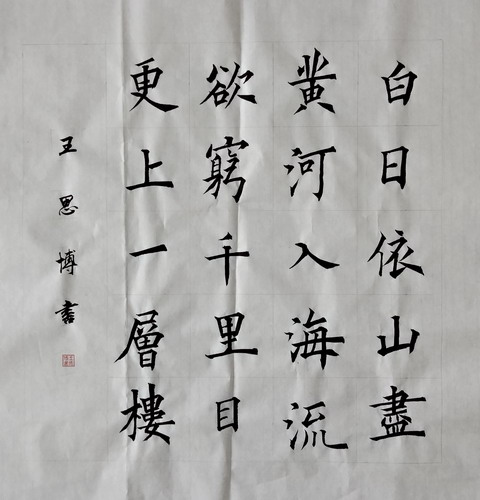 白日依山盡
黄河入海流
欲窮千里目
更上一層樓
王思博書